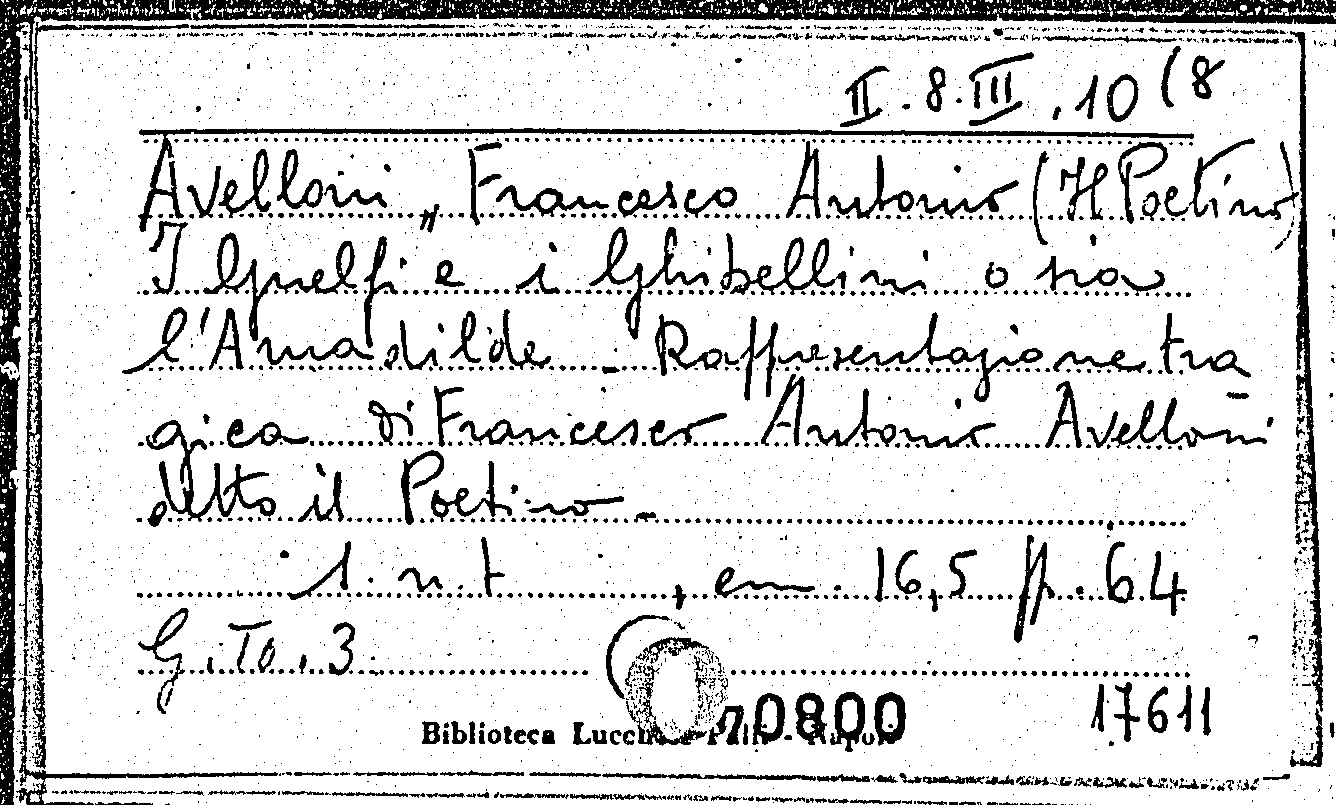 II.8.III.10(8
Avelloni „ Francesco Antonio (Il Poetino)
I Guelfi e i Ghibellini o sia
l'Amadilde - Rappresentazione tra
gica di Francesco Antonio Avelloni
detto il Poetino -
s.n.t , cm. 16,5 pp. 64
G. To. 3
70800 17611
Biblioteca Lucchesi Palli - Napoli